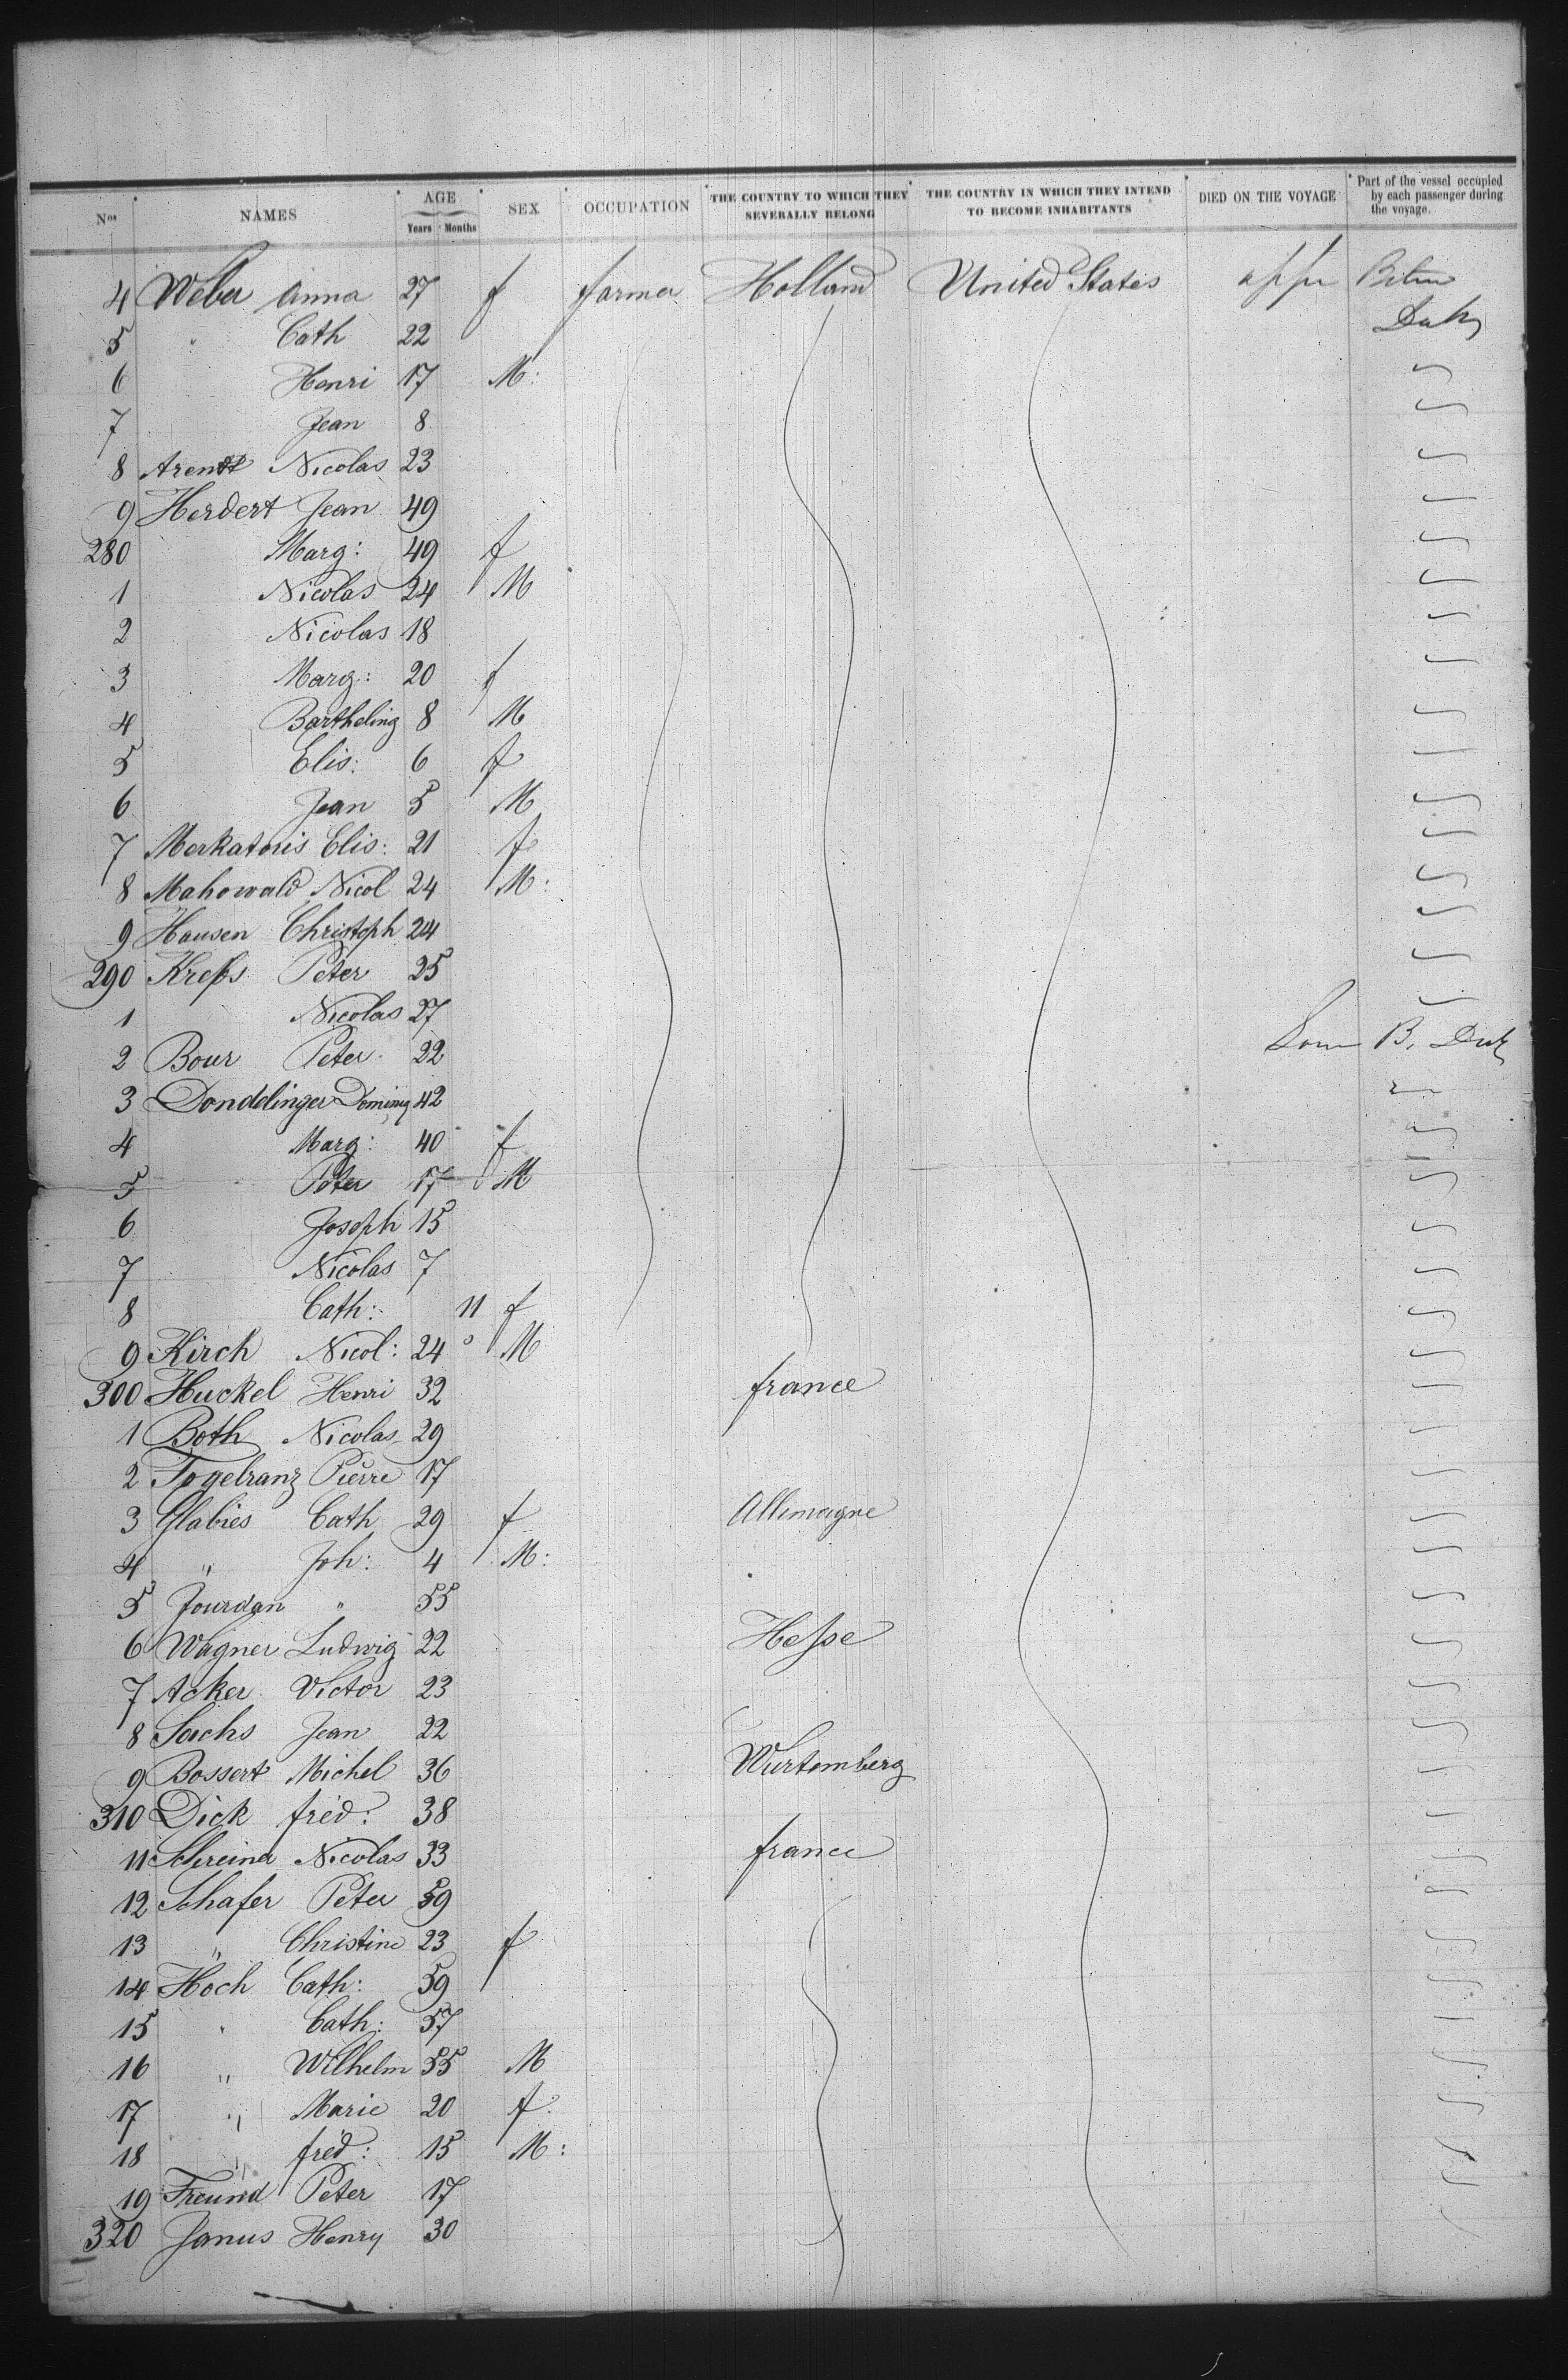 Nos NAMES AGE Years Months SEX OCCUPATION THE COUNTRY TO WHICH THEY SEVERALLY BELONG THE COUNTRY IN WHICH THEY INTEND TO BECOME INHABITANTS DIED ON THE VOYAGE Part of the vessel occupied by each passenger during the voyage.
4 Weber Anna 27 f farmer Holland United States
5 " Cath 22
6 Henri 17 M:
7 Jean 8
8 Arendt Nicolas 23
9 Herdert Jean 49
280 Marg: 49 f
1 Nicolas 24 M
2 Nicolas 18
3 Marg: 20 f
4 8 M
5 Elis: 6 f
6 Jean 5 M
7 Merkatoris Elis: 21 f
8 Mahowald Nicol 24 M:
9 Hausen Christoph 24
290 Kreps Peter 25
1 Nicolas 27
2 Bour Peter 22 B.
3 Donddlinger Dominiq 42
4 Marg: 40 f
5 Peter 17 M
6 Joseph 15
7 Nicolas 7
8 Cath: 11 f
9 Kirch Nicol: 24 M
300 Huckel Henri 32 france
1 Both Nicolas 29
2 Pierre 17
3 Glabies Cath 29 f Allemagne
4 " Joh: 4 M:
5 Jourdan " 55
6 Wagner Ludwig 22 Hesse
7 Acker Victor 23
8 Sachs Jean 22
9 Bossert Michel 36 Wurtemberg
310 Dick fréd: 38
11 Schreiner Nicolas 33 france
12 Schafer Peter 59
13 " Christine 23 f
14 Hoch Cath: 59
15 " Cath: 57
16 " Wilhelm 55 M
17 " Marie 20 f.
18 " fréd: 15 M:
19 Freund Peter 17
320 Janus Henry 30